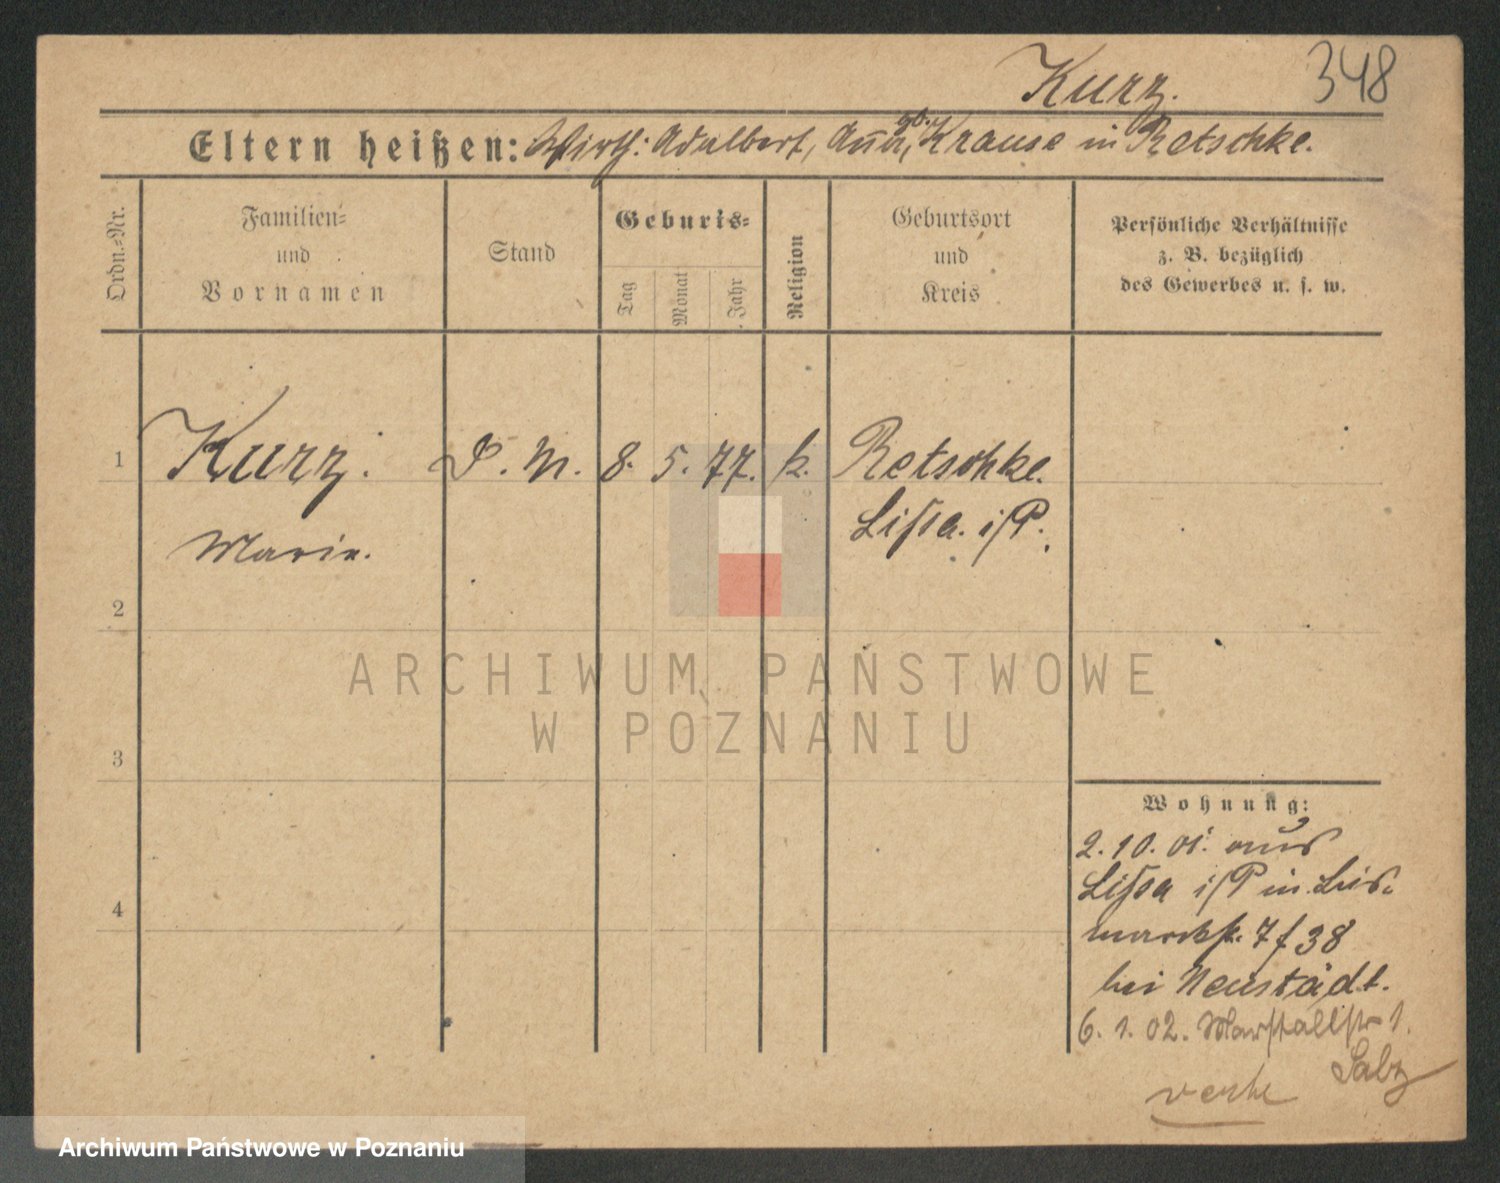 Kurz.
348
Eltern heißen: Wirth: Adalbert, Anna, gb. Krause in Retschke.
Ordn.-Nr.
Familien-
und
Vornamen
Stand
Geburts-
Tag
Monat
Jahr
Religion
Geburtsort
und
Kreis
Persönliche Verhältnisse
z. B. bezüglich
des Gewerbes u. s. w.
1 Kurz. D. M. 8. 5. 77. k. Retschke.
Lissa. i/P.
Marie.
2
ARCHIWUM PAŃSTWOWE
W POZNANIU
3
Wohnung:
2. 10. 01. aus
Lissa i/P in Bis-
4
marckstr. 7 f 38
bei Neustädt.
6. 1. 02. Marstallstr 1.
Salz
Archiwum Państwowe w Poznaniu